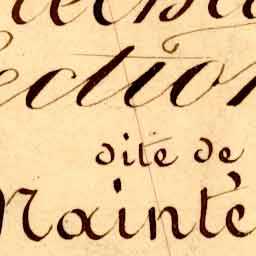 ection
dite de
Mainte